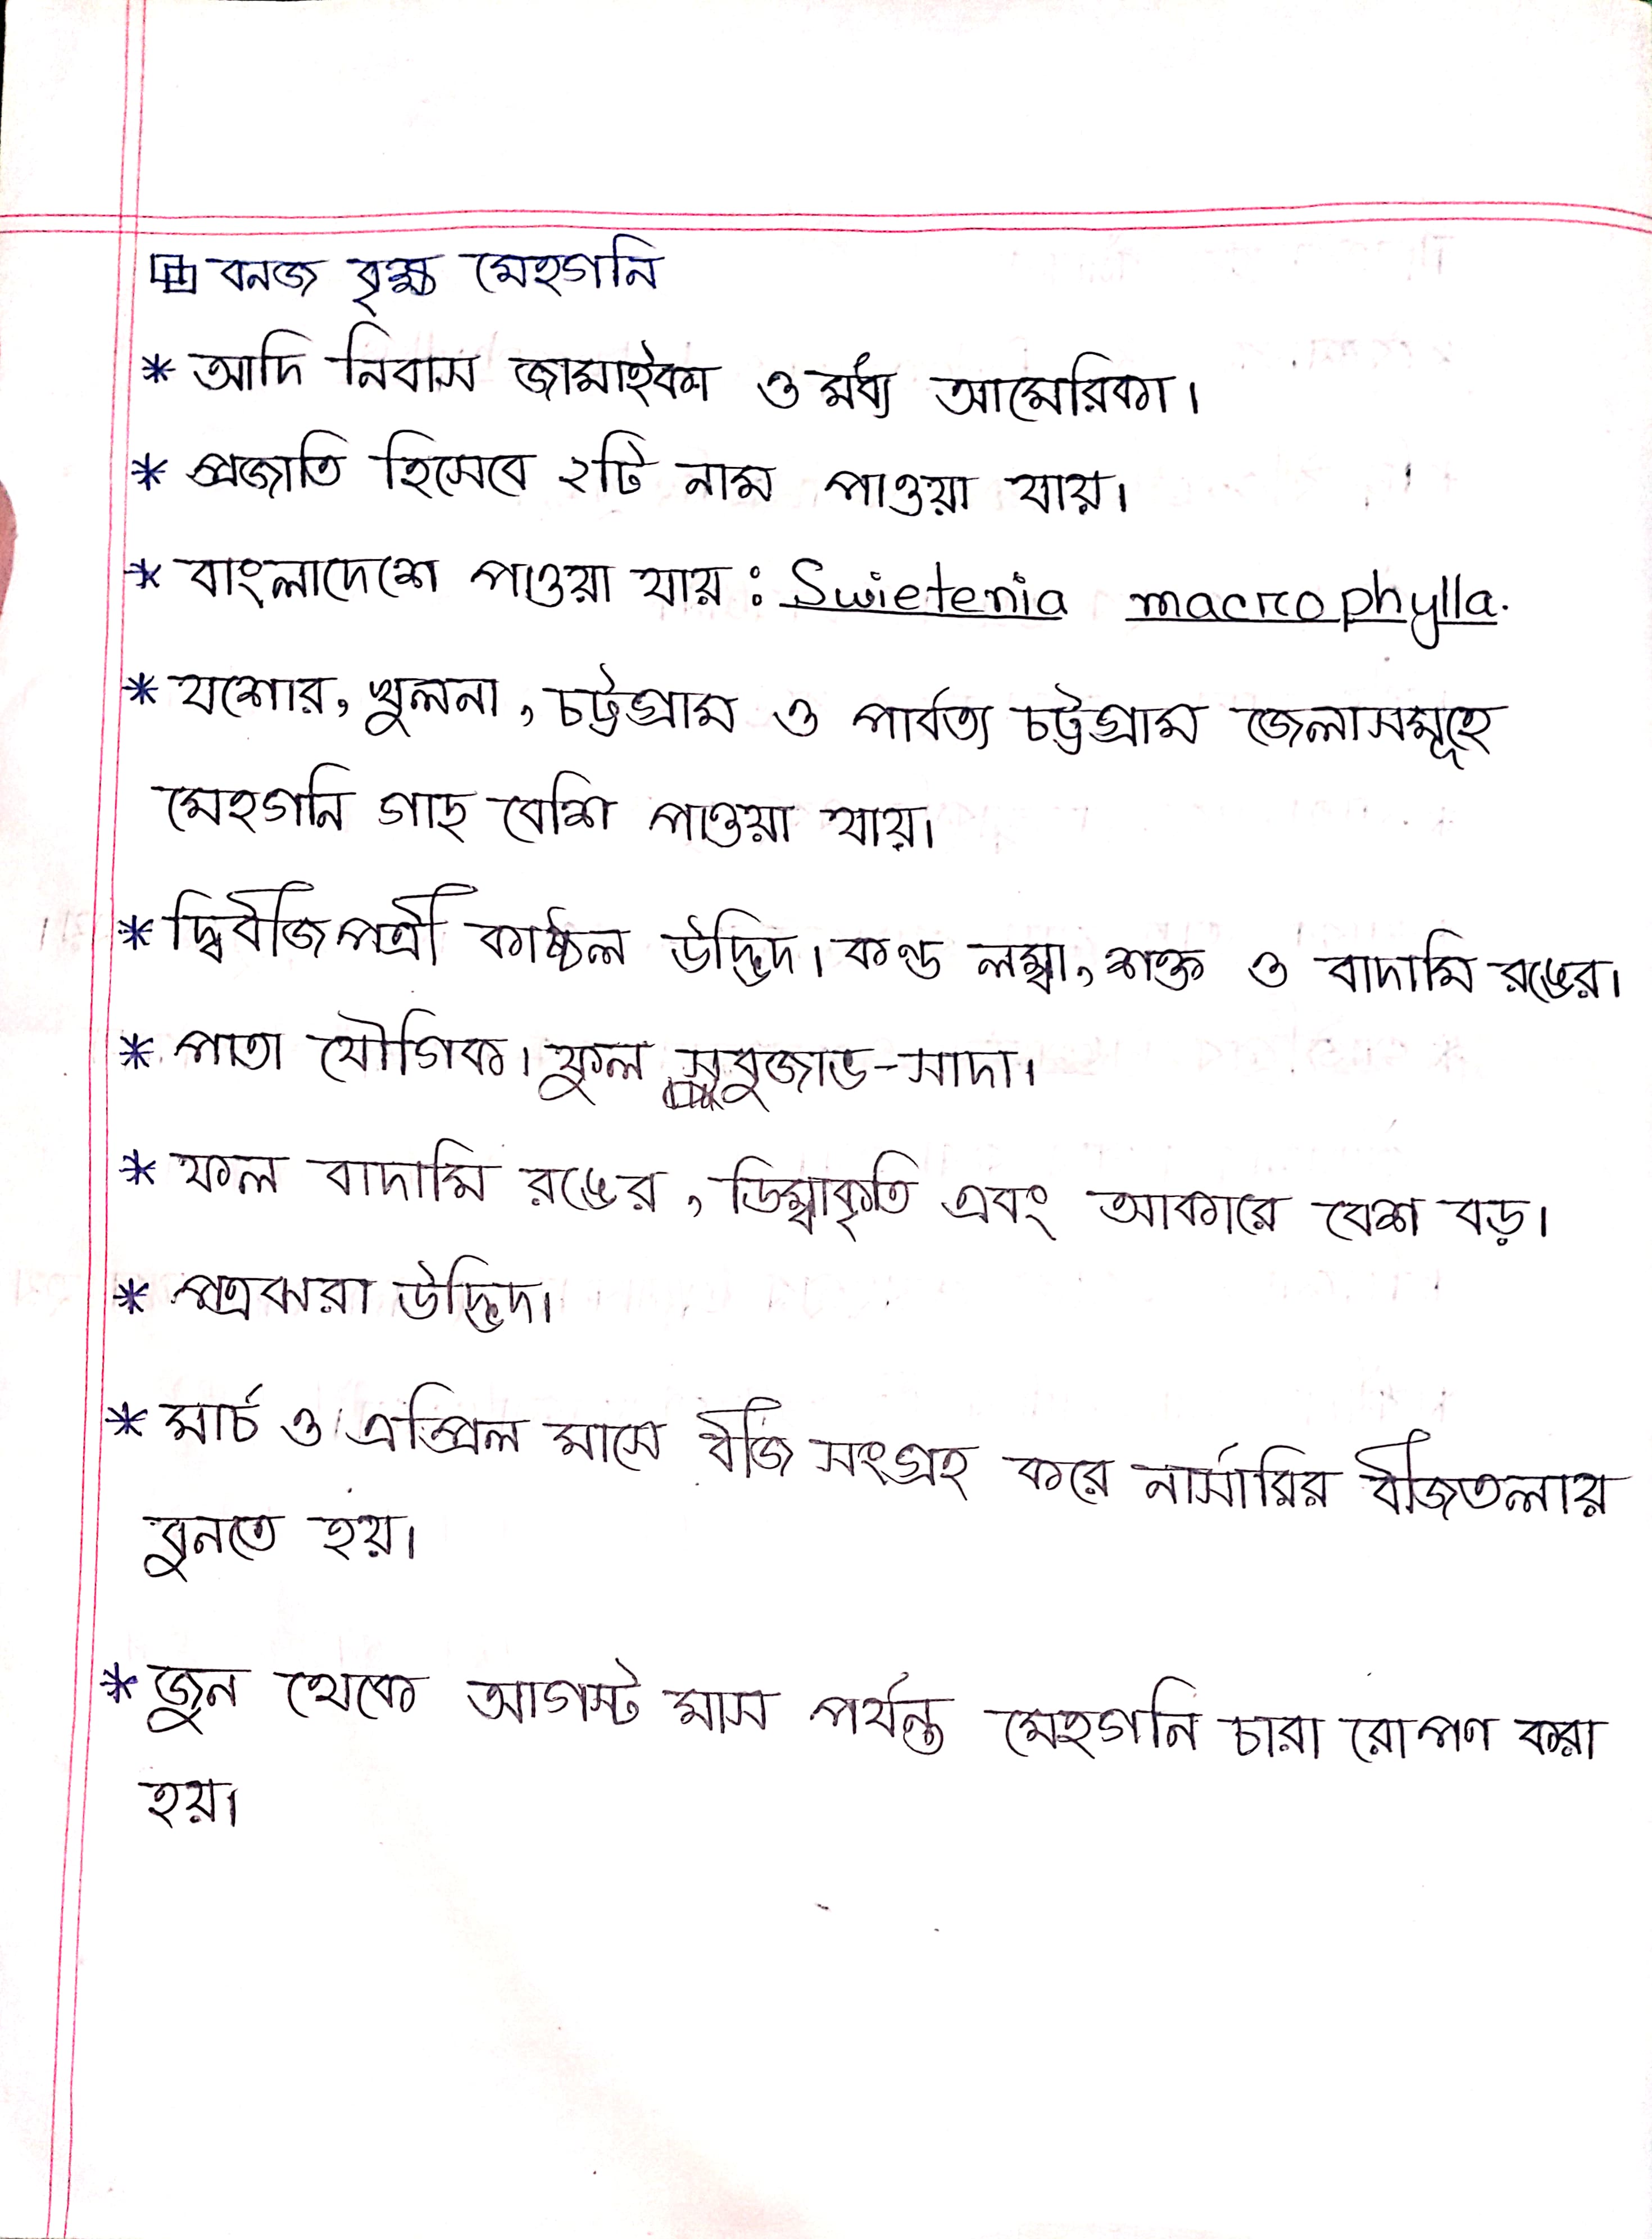 বনজ বৃক্ষ মেহগনি
* আদি নিবাস জামাইকা ও মধ্য আমেরিকা।
* প্রজাতি হিসেবে ২টি নাম পাওয়া যায়।
* বাংলাদেশে পাওয়া যায় : Swietenia macrophylla.
* যশোর, খুলনা, চট্টগ্রাম ও পার্বত্য চট্টগ্রাম জেলাসমূহে
মেহগনি গাছ বেশি পাওয়া যায়।
* দ্বিবীজপত্রী কাষ্ঠল উদ্ভিদ। কান্ড লম্বা, শক্ত ও বাদামি রঙের।
* পাতা যৌগিক। ফুল সবুজাভ-সাদা।
* ফল বাদামি রঙের, ডিম্বাকৃতি এবং আকারে বেশ বড়।
* পত্রঝরা উদ্ভিদ।
* মার্চ ও এপ্রিল মাসে বীজ সংগ্রহ করে নার্সারির বীজতলায়
বুনতে হয়।
* জুন থেকে আগস্ট মাস পর্যন্ত মেহগনি চারা রোপণ করা
হয়।